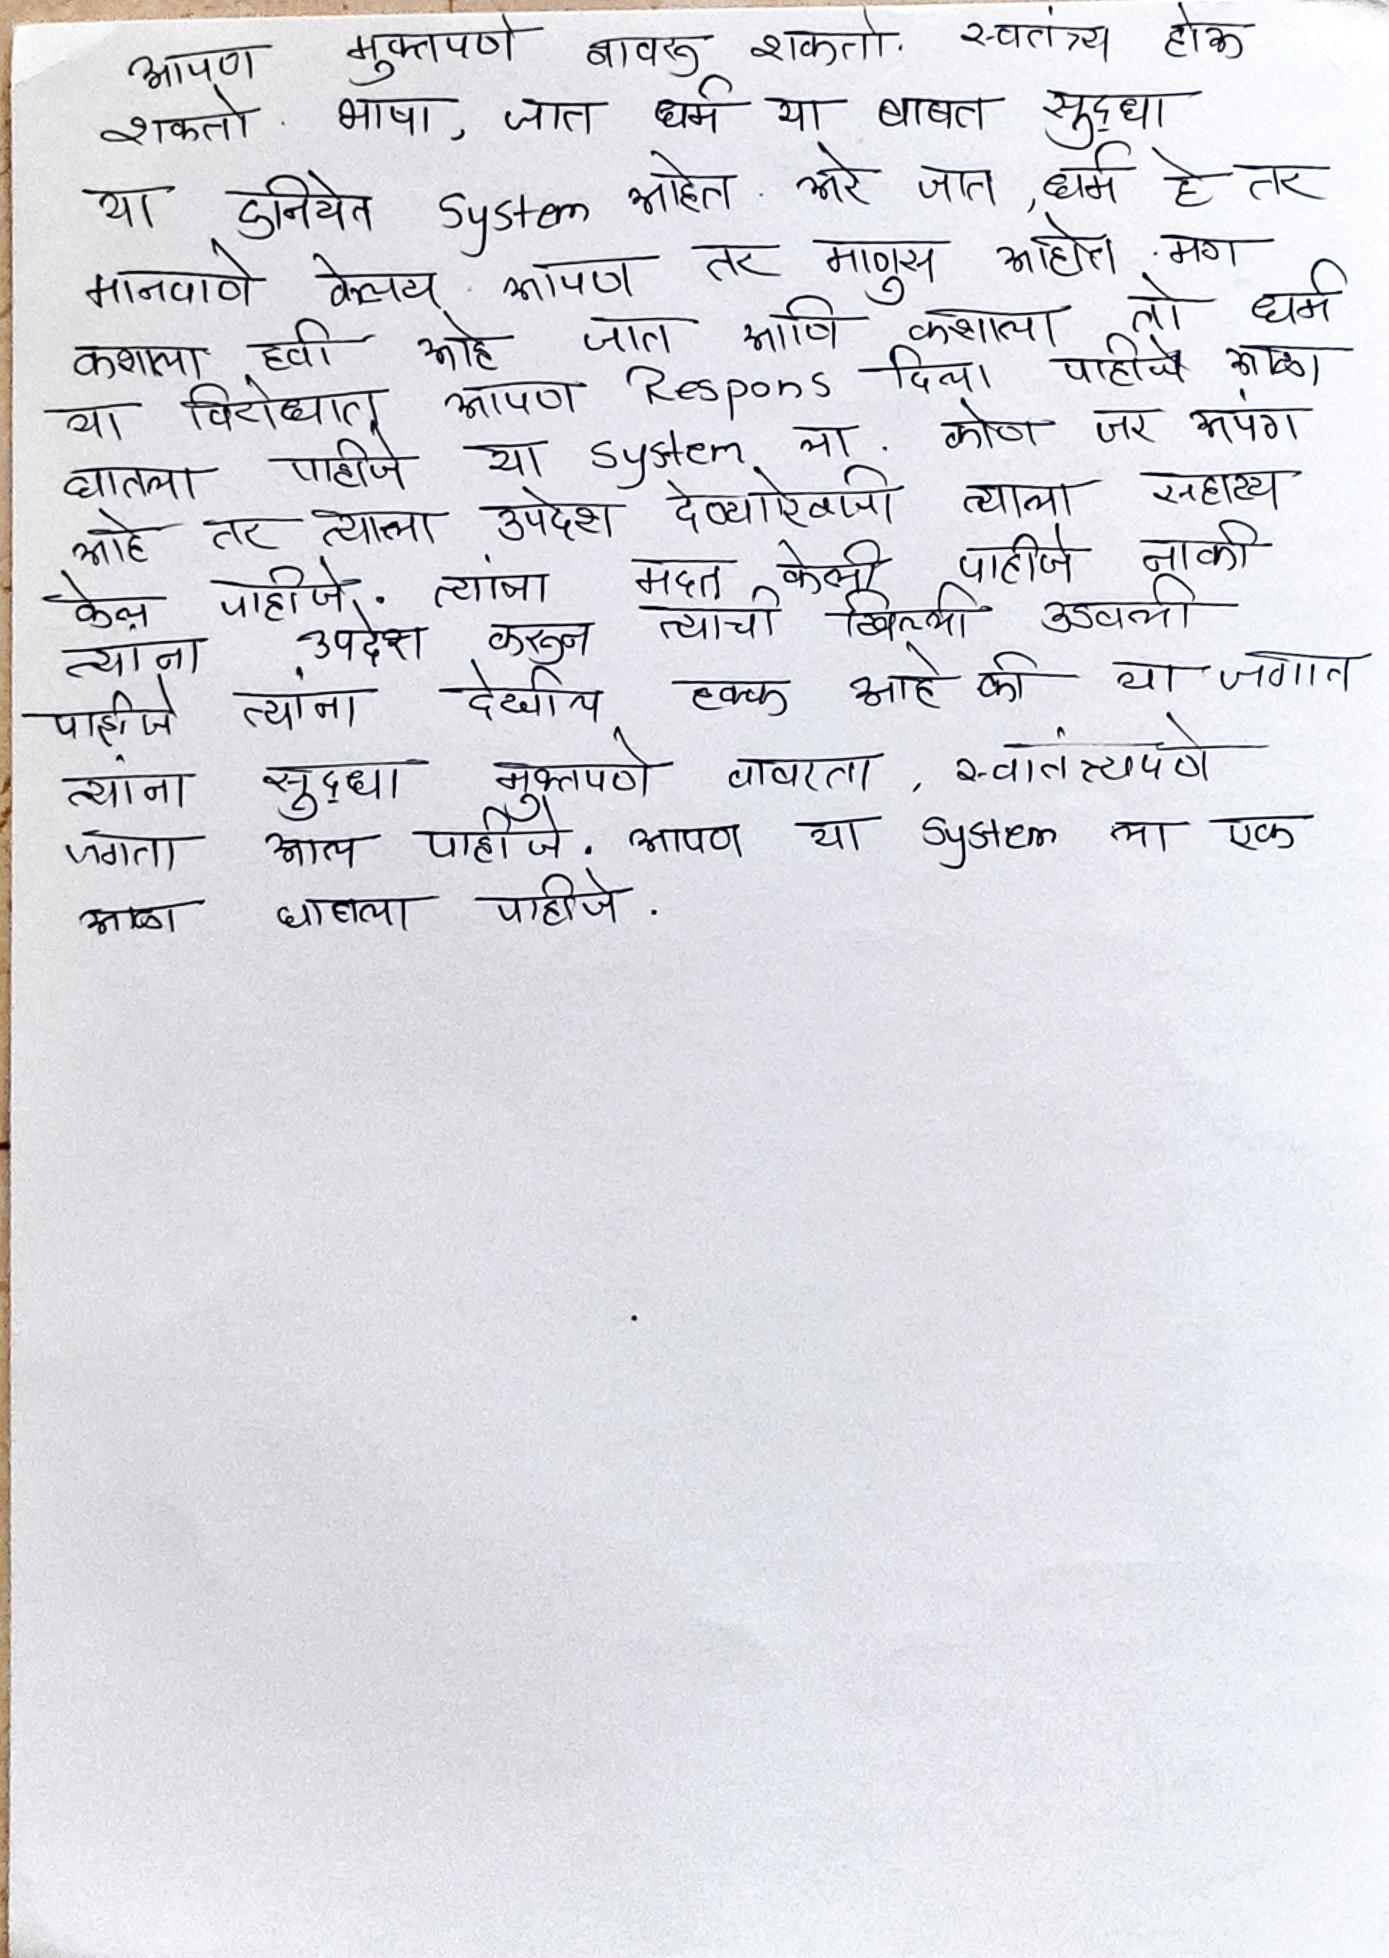 आपण मुक्तपणे बावरू शकतो. स्वतंत्र्य होऊ
शकतो. भाषा, जात धर्म या बाबत सुद्धा
या दुनियेत System आहेत. अरे जात, धर्म हे तर
मानवाणे केलय. आपण तर माणुस आहोत. मग
कशाला हवी आहे जात आणि कशाला तो धर्म
या विरोधात आपण Respons दिला पाहीजे आळा
घातला पाहीजे या System ला. कोण जर अपंग
आहे तर त्याला उपदेश देण्याऐवजी त्याला सहाय्य
केल पाहीजे. त्यांना मदत केली पाहीजे नाकी
त्याना उपदेश करून त्याची खिल्ली उडवली
पाहीजे त्यांना देखील हक्क आहे की या जगात
त्यांना सुद्धा मुक्तपणे वावरता, स्वातंत्र्यपणे
जगता आल पाहीजे. आपण या System ला एक
आळा घातला पाहीजे.